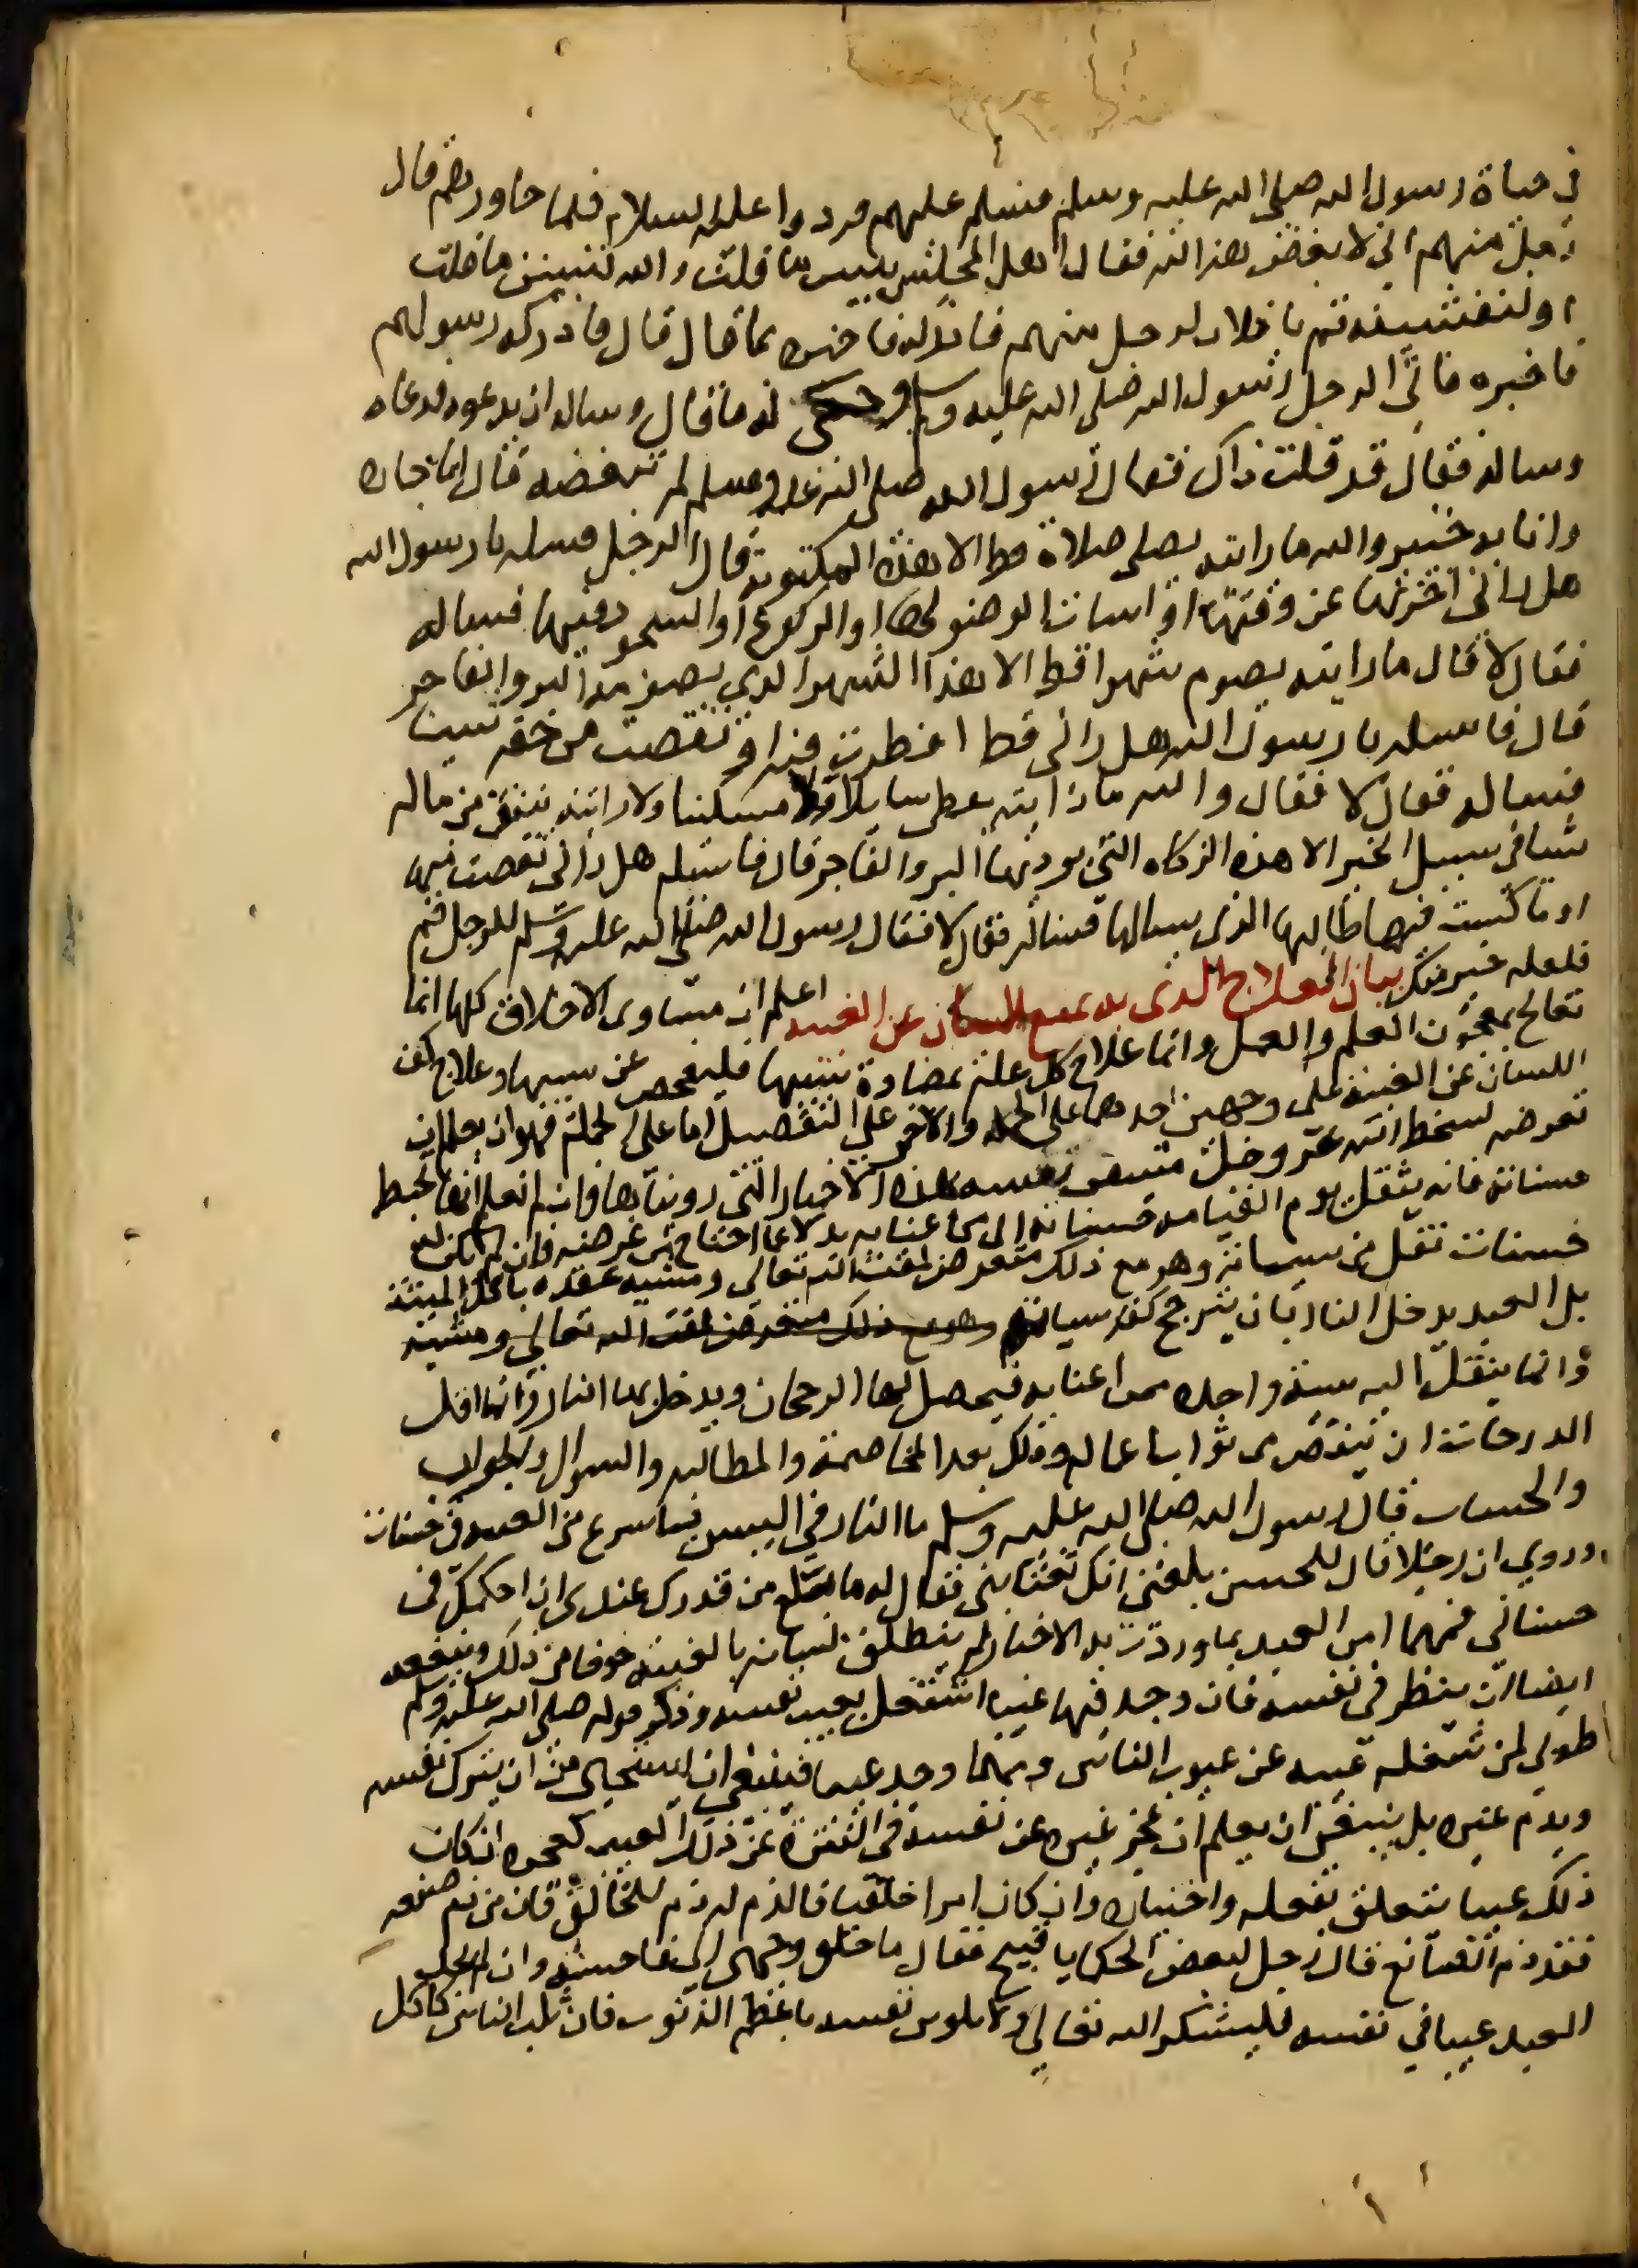 في حياة رسول الله صلى الله عليه وسلم فسلم عليهم فردوا عليه السلام فلما جاوزهم قال
رجل منهم اني لابغض هذا لله فقال اهل المجلس بيس ما قلت والله لننبينه ما قلت
اولنفتشينه قم يا فلان لرجل منهم فادركه فاخبره بما قال قال فادركه رسولهم
فاخبره فاتى الرجل رسول الله صلى الله عليه وسلم وحكى له ما قال وساله ان يدعوه فدعاه
وساله فقال قد قلت ذاك فقال رسول الله صلى الله عليه وسلم لم تبغضه قال انا جاره
وانا به خبير والله ما رايته يصلي صلاة قط الا هذه المكتوبة قال الرجل فسله يا رسول الله
هل راني اخرتها عن وقتها او اسات الوضو لها او الركوع او السجود فيها فساله
فقال لا قال ما رايته يصوم شهرا قط الا هذا الشهر الذي يصومه البر والفاجر
قال فاسله يا رسول الله هل راني قط افطرت فيه او تنقصت من حقه شيئا
فساله فقال لا فقال والله ما رايته يعطي سايلا ولا مسكينا ولا رايته ينفق من ماله
شيا في سبيل الخير الا هذه الزكاه التي يوديها البر والفاجر قال فاسله هل راني نقصت منها
او ماكست فيها طالبها الذي يسالها فساله فقال لا فقال رسول الله صلى الله عليه وسلم للرجل قم
فلعله خير منك بيان العلاج الذي به يمنع اللسان عن الغيبة اعلم ان مساوى الاخلاق كلها انما
تعالج بمعجون العلم والعمل وانما علاج كل علة بمضادة سببها فليفحص عن سببها وعلاج كف
اللسان عن الغيبة على وجهين احدهما على الجملة والاخر على التفصيل اما على الجملة فهو ان يعلم ان
تعرضه لسخط الله عز وجل بهذه الاخبار التي رويناها وان يعلم انها تحبط
حسناته فانه ينقل يوم القيامة حسناته الى من اغتابه بدلا عما احتاج من عرضه فان لم تكن له
حسنات نقل من سيياته وهو مع ذلك متعرض لمقت الله تعالى ومشبه عنده باكل الميتة
بل العبد يدخل النار بان يترجح كفة سياته وهو مع ذلك متعرض لمقت الله تعالى ومشبه
وانما ينقل اليه سيية واحدة ممن اغتابه فيحصل بها الرجحان ويدخل بها النار وانما اقل
الدرجات ان ينقص من ثواب اعماله وذلك بعد المخاصمة والمطالبه والسوال والجواب
والحساب قال رسول الله صلى الله عليه وسلم ما النار في اليبس باسرع من العبد في حسنات
وروي ان رجلا قال للحسن بلغني انك تغتابني فقال له ما بلغ من قدرك عندي ان احكمك في
حسناتي فمهما امن العبد بما وردت به الاخبار لم ينطلق لسانه بالغيبة خوفا من ذلك وينفعه
ايضا ان ينظر في نفسه فان وجد فيها عيبا اشتغل بعيب نفسه وذكر قوله صلى الله عليه وسلم
طوبى لمن شغله عيبه عن عيوب الناس ومهما وجد عيبا فينبغي ان يستحيي من ان يترك نفسه
ويذم غيره بل ينبغي ان يعلم ان عجز غيره عن نفسه في التنزه عن ذلك العيب كعجزه ان كان
ذلك عيبا يتعلق بفعله واختياره وان كان امرا خلقيا فالذم له ذم للخالق فان من ذم صنعه
فقد ذم الصانع قال رجل لبعض الحكما يا قبيح فقال ما خلق وجهي الي فاحسنه وان لم يجد
العبد عيبا في نفسه فليشكر الله تعالى ولا يلوث نفسه باعظم الذنوب فان ثلب الناس كاكل